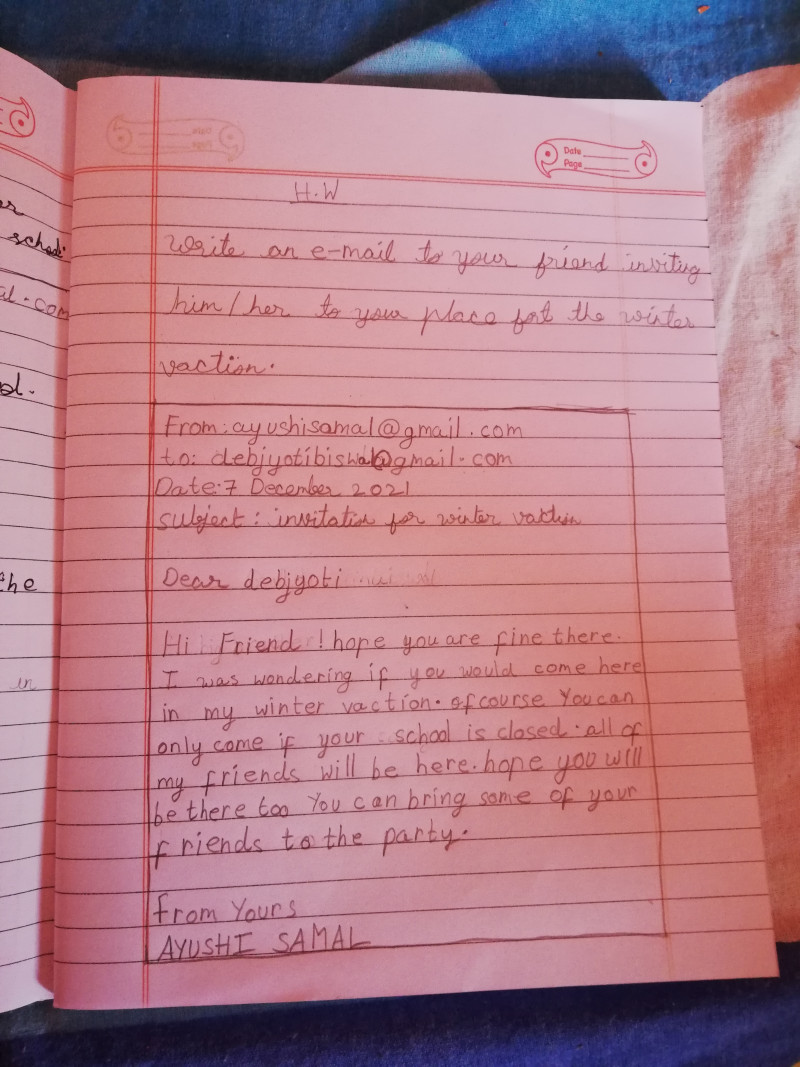 Date
Page
H.W
write an e-mail to your friend inviting
him/her to your place fort the winter
vaction.
From: ayushisamal@gmail.com
to: debjyotibiswal@gmail.com
Date: 7 December 2021
subject: invitation for winter vaction
Dear debjyoti
Hi Friend ! hope you are fine there.
I was wondering if you would come here
in my winter vaction. of course You can
only come if your school is closed. all of
my friends will be here. hope you will
be there too You can bring some of your
friends to the party.
from Yours
AYUSHI SAMAL
school.
al.com
the
in